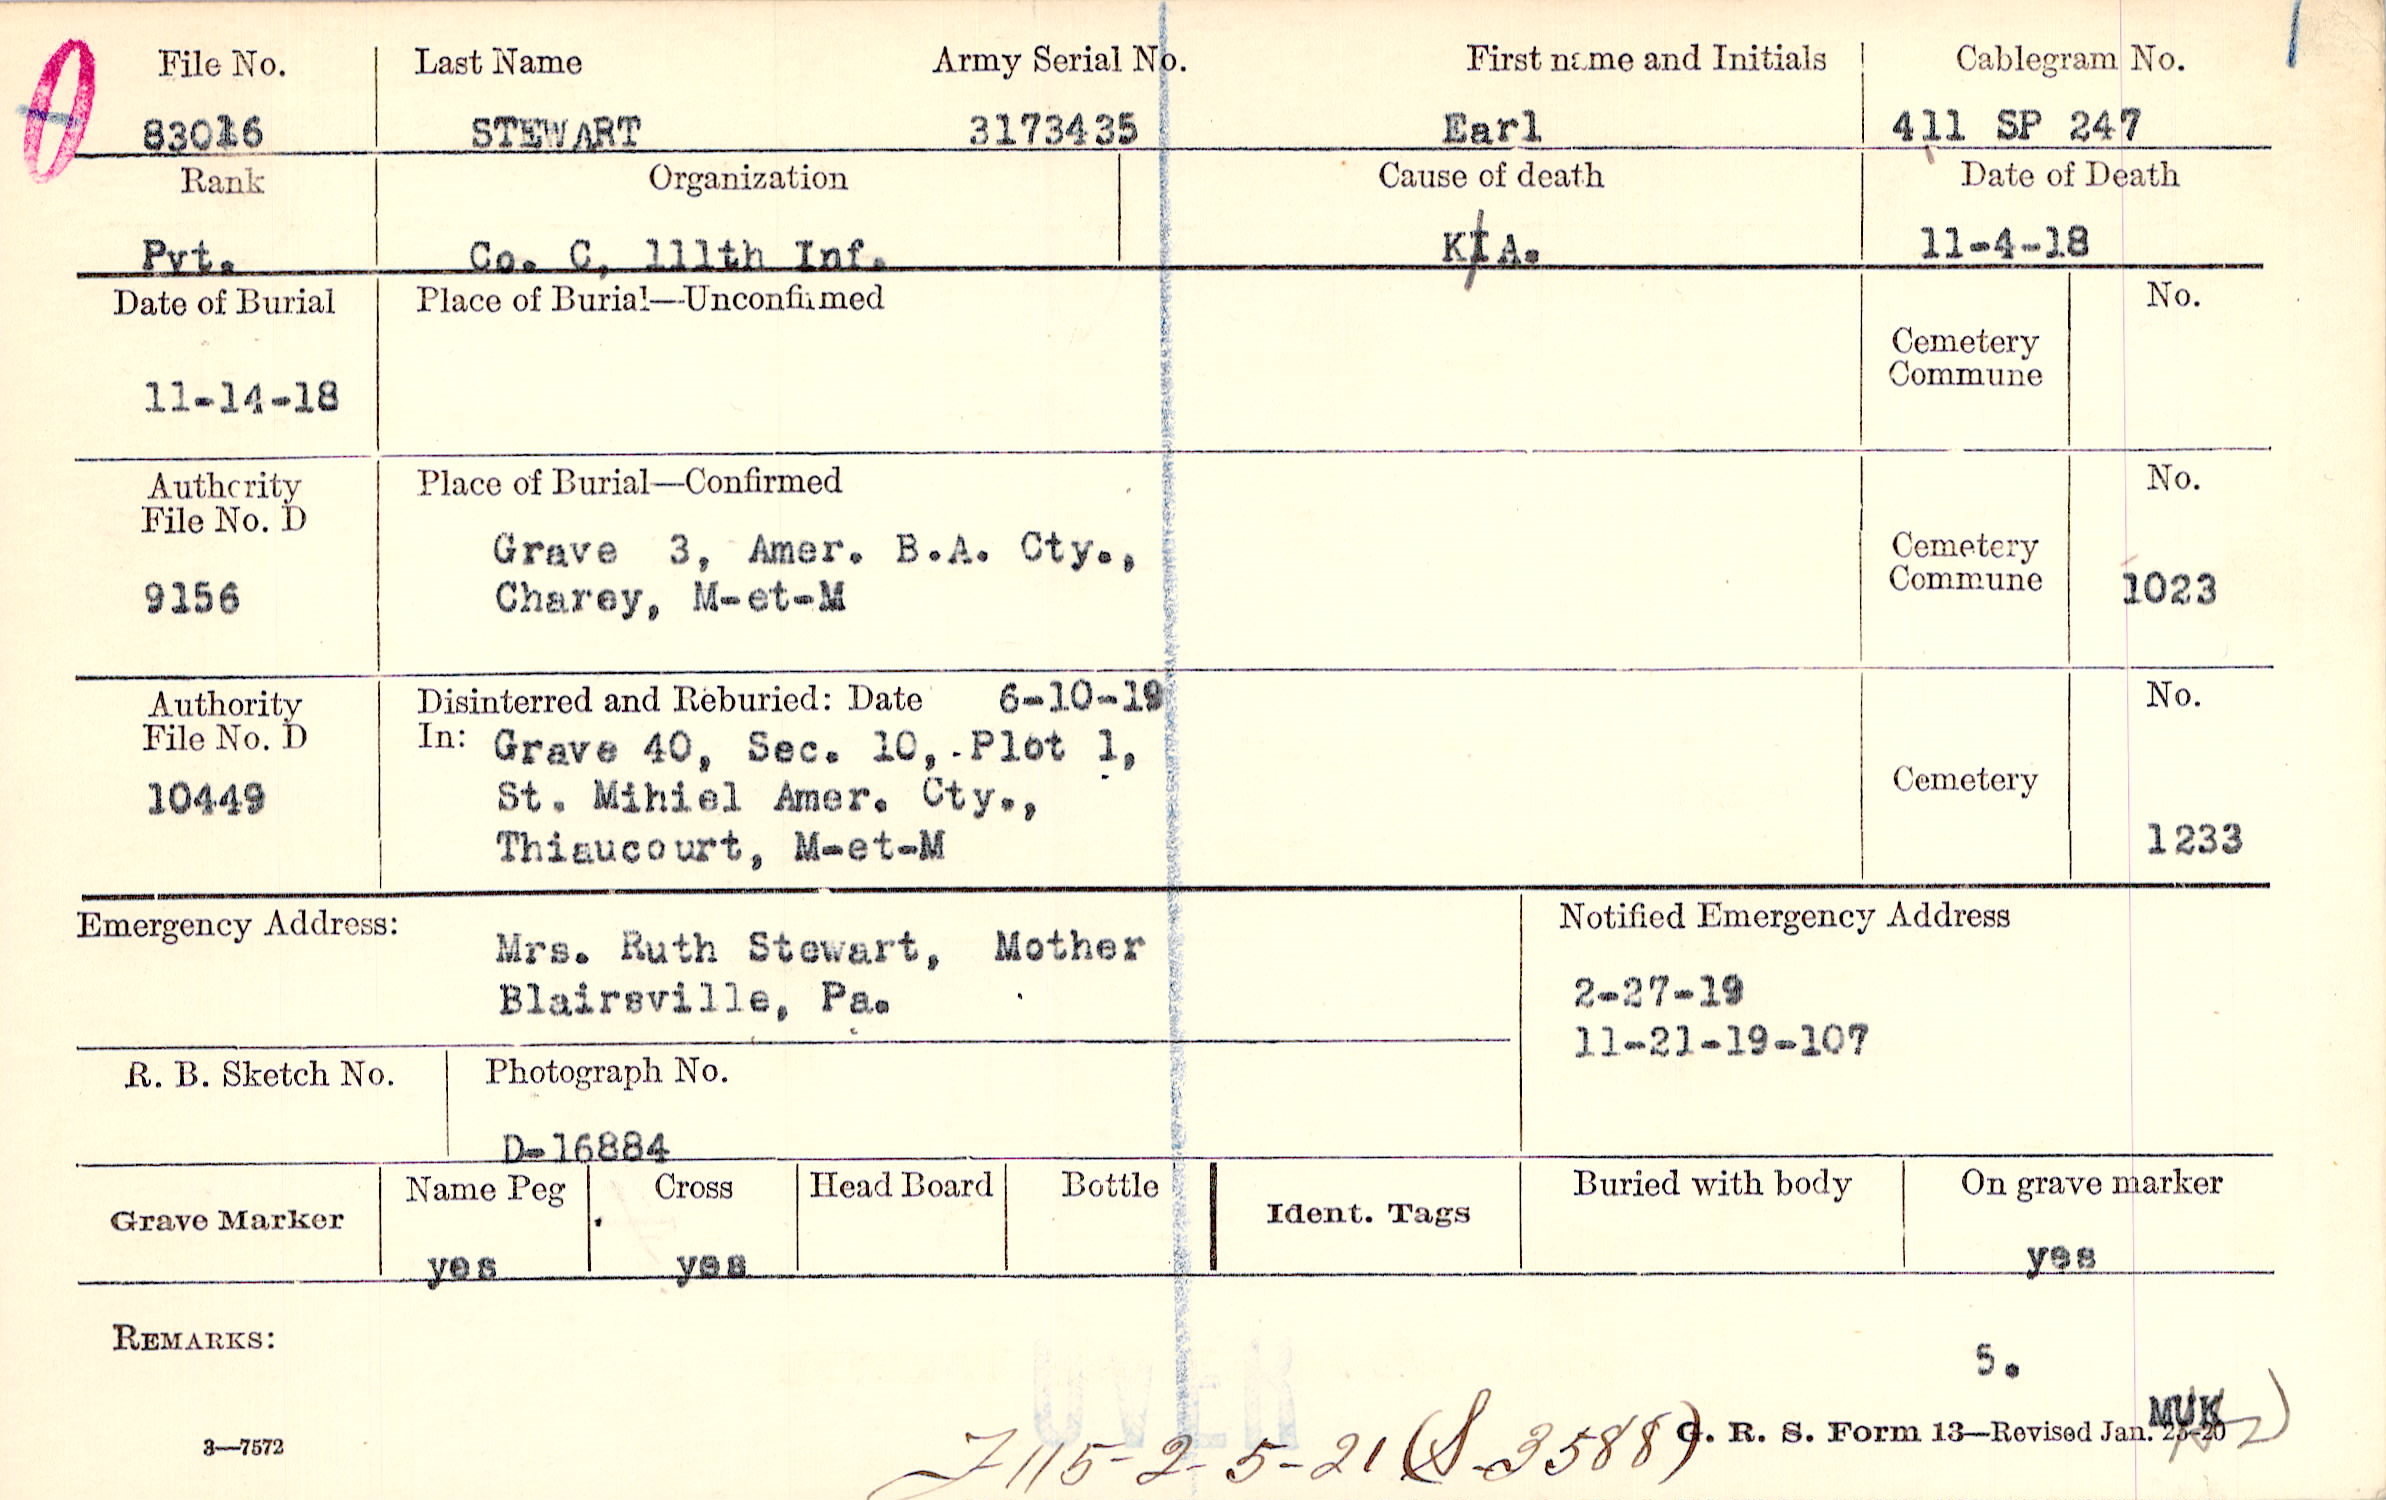 File No. Last Name Army Serial No. First name and Initials Cablegram No.
83016 STEWART 3173435 Earl 411 SP 247
Rank Organization Cause of death Date of Death
Pvt. Co. C, 111th Inf. KIA. 11-4-18
Date of Burial Place of Burial—Unconfirmed No.
Cemetery
Commune
11-14-18
Authority Place of Burial—Confirmed No.
File No. D
Grave 3, Amer. B.A. Cty., Cemetery
9156 Charey, M-et-M Commune 1023
Authority Disinterred and Reburied: Date 6-10-19 No.
File No. D In: Grave 40, Sec. 10, Plot 1,
10449 St. Mihiel Amer. Cty., Cemetery
Thiaucourt, M-et-M 1233
Emergency Address: Notified Emergency Address
Mrs. Ruth Stewart, Mother 2-27-19
Blairsville, Pa. 11-21-19-107
R. B. Sketch No. Photograph No.
D-16884
Grave Marker Name Peg Cross Head Board Bottle Ident. Tags Buried with body On grave marker
yes yes yes
REMARKS:
5.
MUK
3—7572 G. R. S. Form 13—Revised Jan. 25-20
115-2-5-21 (S-3588)
OVER